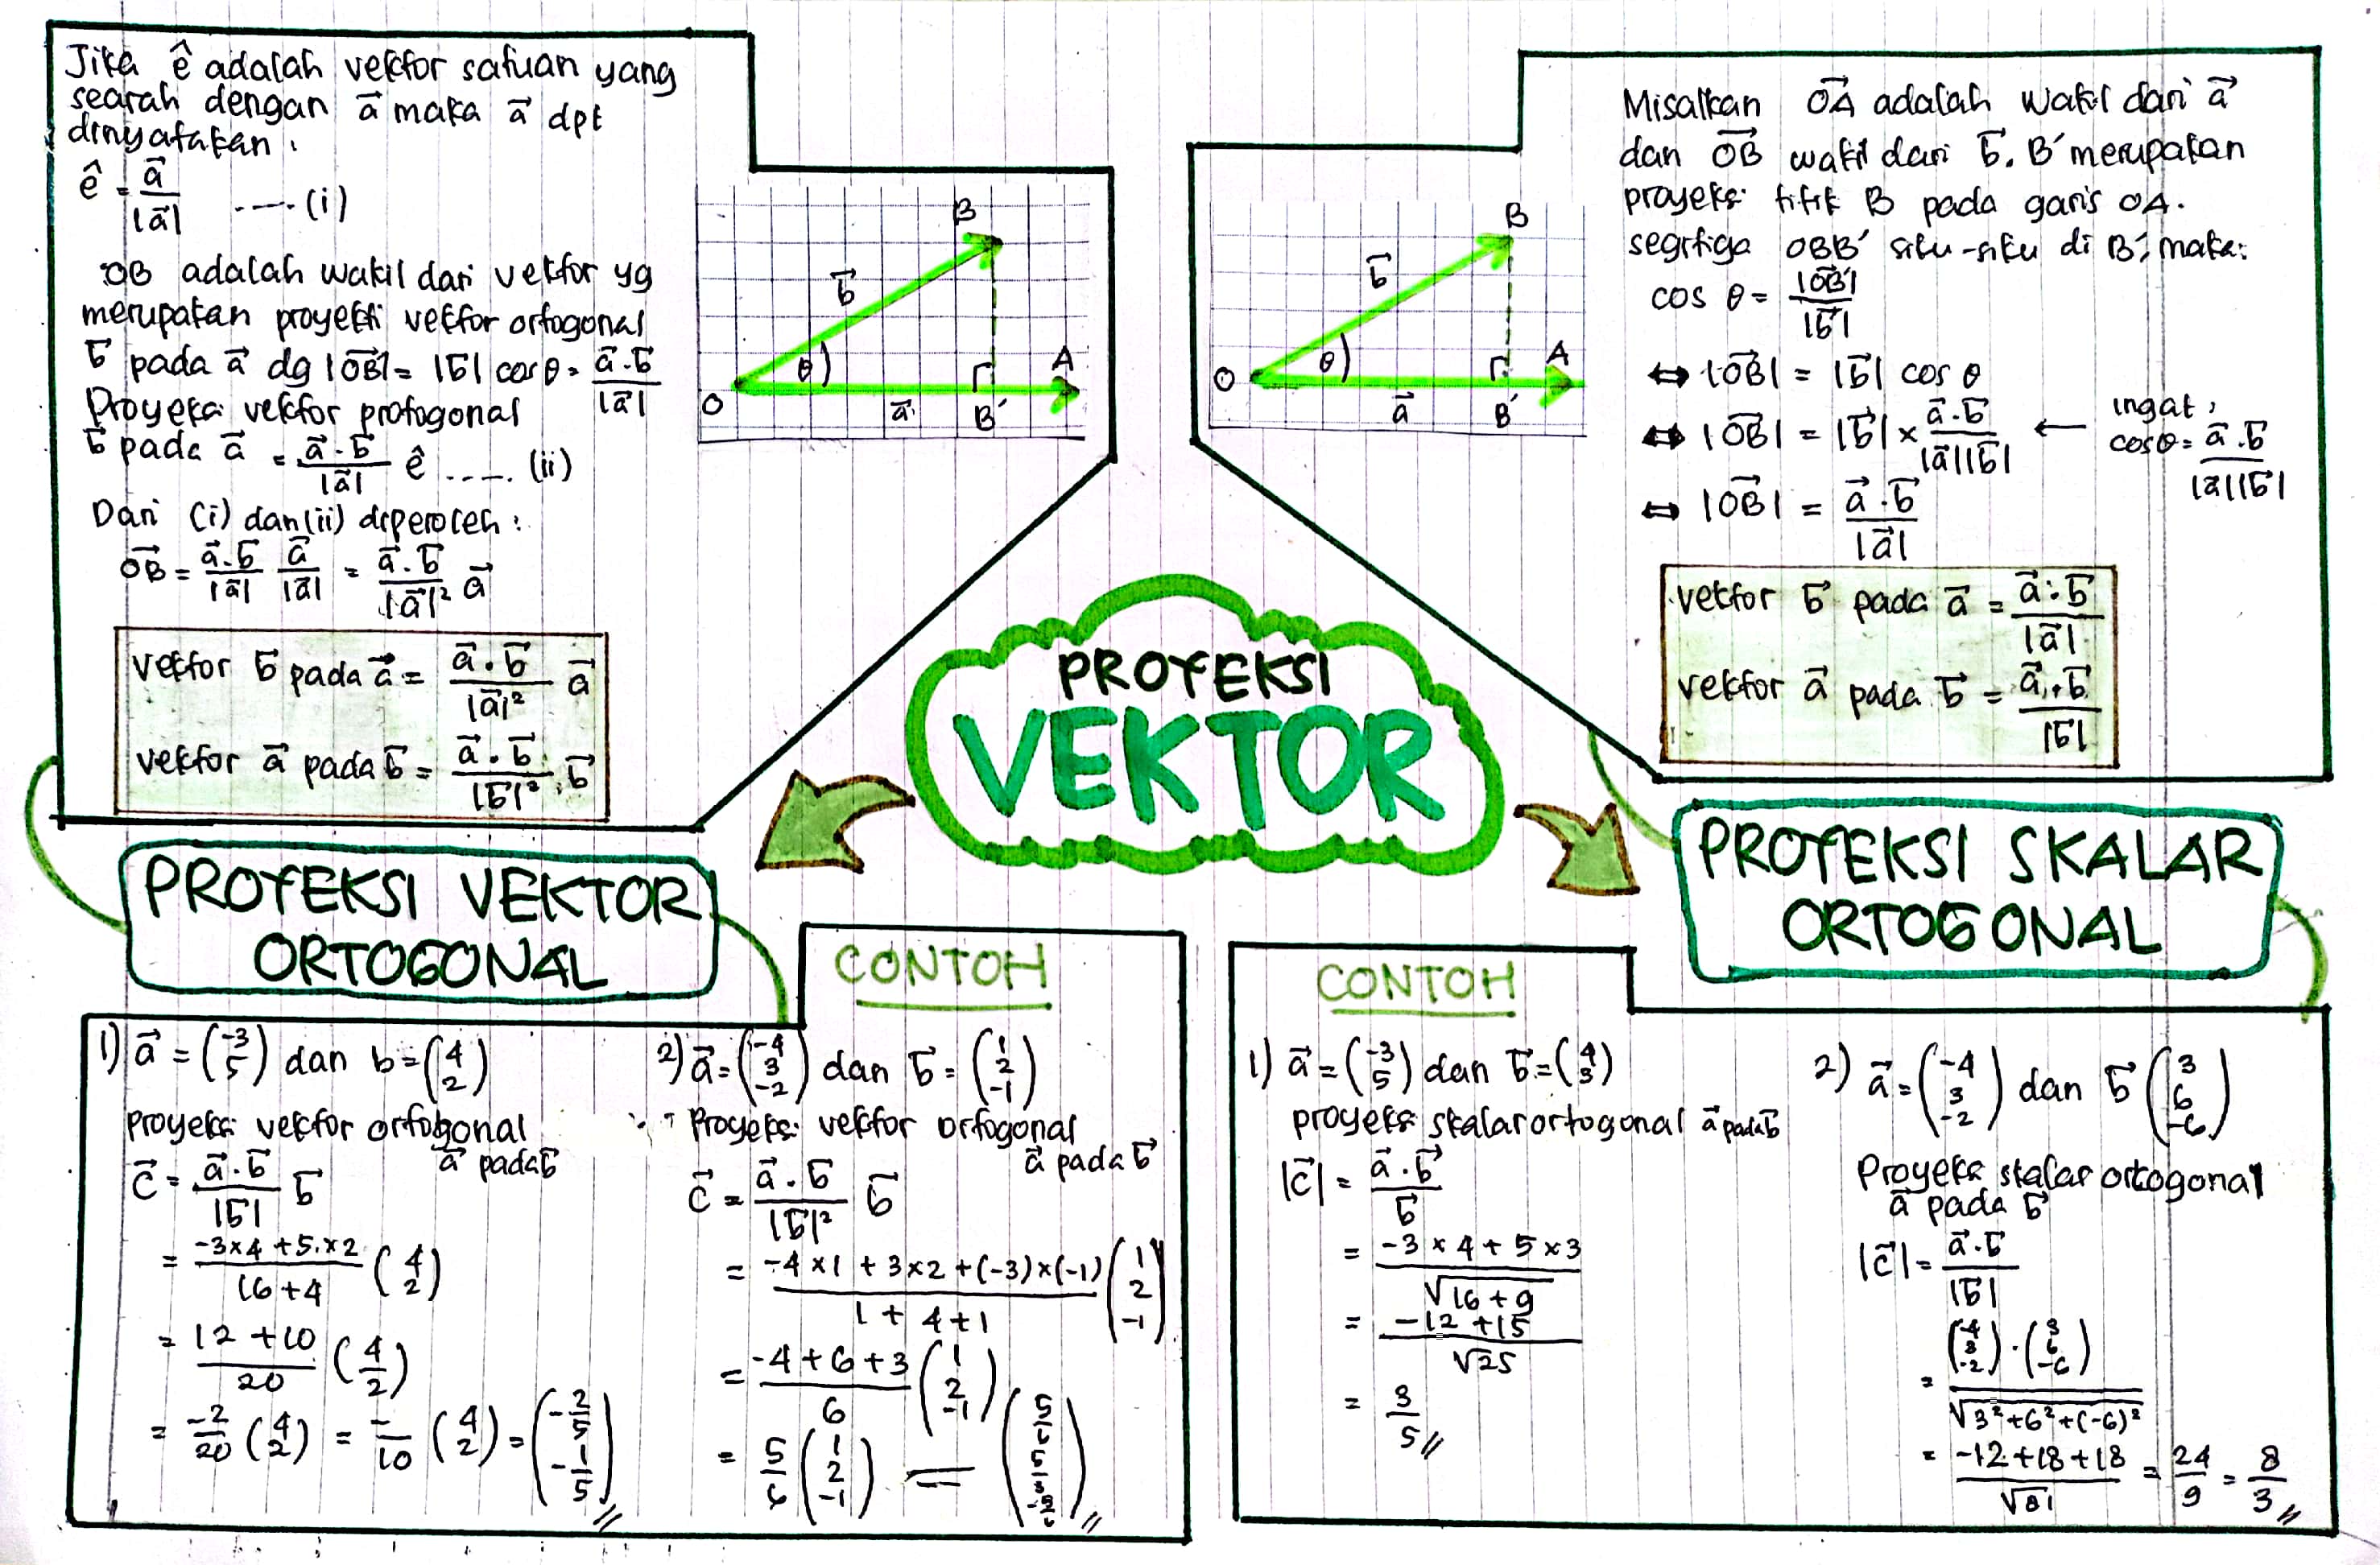 Jika ê adalah vektor satuan yang
searah dengan a⃗ maka a⃗ dpt
dinyatakan:
ê = a⃗/|a⃗| ..... (i)
OB adalah wakil dari vektor yg
merupakan proyeksi vektor ortogonal
b⃗ pada a⃗ dg |OB⃗| = |b⃗| cos θ = a⃗·b⃗/|a⃗|
Proyeksi vektor protogonal
b⃗ pada a⃗ = a⃗·b⃗/|a⃗| ê ..... (ii)
Dari (i) dan (ii) diperoleh:
OB⃗ = a⃗·b⃗/|a⃗| a⃗/|a⃗| = a⃗·b⃗/|a⃗|² a⃗
vektor b⃗ pada a⃗ = a⃗·b⃗/|a⃗|² a⃗
vektor a⃗ pada b⃗ = a⃗·b⃗/|b⃗|² · b⃗
B
b⃗
θ
O
a⃗
B'
A
B
b⃗
θ
O
a⃗
B'
A
Misalkan OA⃗ adalah wakil dari a⃗
dan OB⃗ wakil dari b⃗. B' merupakan
proyeksi titik B pada garis OA.
segitiga OBB' siku-siku di B', maka:
cos θ = |OB⃗'|/|b⃗|
⇔ |OB⃗| = |b⃗| cos θ
⇔ |OB⃗| = |b⃗| × a⃗·b⃗/|a⃗||b⃗| ← ingat, cos θ = a⃗·b⃗/|a⃗||b⃗|
⇔ |OB⃗| = a⃗·b⃗/|a⃗|
vektor b⃗ pada a⃗ = a⃗·b⃗/|a⃗|
vektor a⃗ pada b⃗ = a⃗·b⃗/|b⃗|
PROYEKSI
VEKTOR
PROYEKSI VEKTOR
ORTOGONAL
PROYEKSI SKALAR
ORTOGONAL
CONTOH
1) a⃗ = (-3 5) dan b = (4 2)
Proyeksi vektor ortogonal
a⃗ pada b⃗
c⃗ = a⃗·b⃗/|b⃗| b⃗
= -3×4 + 5×2/16+4 (4 2)
= 12 + 10/20 (4 2)
= -2/20 (4 2) = -/10 (4 2) = (-2/5 -1/5)
2) a⃗ = (-4 3 -2) dan b⃗ = (1 2 -1)
Proyeksi vektor ortogonal
a⃗ pada b⃗
c⃗ = a⃗·b⃗/|b⃗|² b⃗
= -4×1 + 3×2 + (-3)×(-1)/1+4+1 (1 2 -1)
= -4+6+3/6 (1 2 -1)
= 5/6 (1 2 -1) = (5/6 5/3 -5/6)
CONTOH
1) a⃗ = (-3 5) dan b⃗ = (4 3)
proyeksi skalar ortogonal a⃗ pada b⃗
|c⃗| = a⃗·b⃗/b⃗
= -3×4 + 5×3/√16+9
= -12+15/√25
= 3/5
2) a⃗ = (-4 3 -2) dan b⃗ (3 6 -6)
Proyeksi skalar ortogonal
a⃗ pada b⃗
|c⃗| = a⃗·b⃗/|b⃗|
= (-4 3 -2)·(3 6 -6)/√3²+6²+(-6)²
= -12+18+18/√81 = 24/9 = 8/3